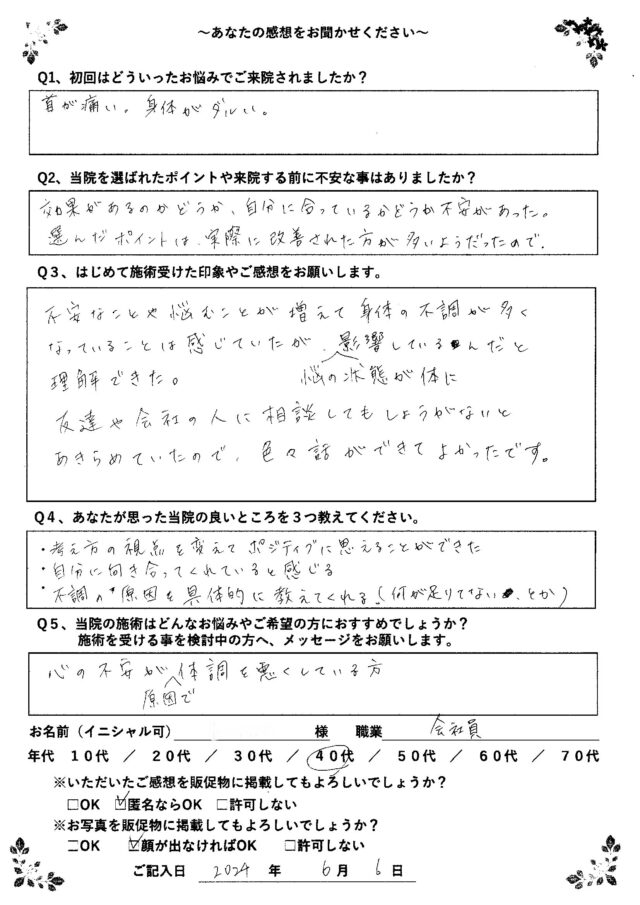 ～あなたの感想をお聞かせください～
Q1、初回はどういったお悩みでご来院されましたか？
首が痛い。身体がダルい。
Q2、当院を選ばれたポイントや来院する前に不安な事はありましたか？
効果があるのかどうか、自分に合っているかどうか不安があった。
選んだポイントは、実際に改善された方が多いようだったので。
Q３、はじめて施術受けた印象やご感想をお願いします。
不安なことや悩むことが増えて身体の不調が多く
なっていることは感じていたが、影響しているんだと
理解できた。 悩の状態が体に
友達や会社の人に相談してもしょうがないと
あきらめていたので、色々話ができてよかったです。
Q４、あなたが思った当院の良いところを３つ教えてください。
・考え方の視点を変えてポジティブに思えることができた
・自分に向き合ってくれていると感じる
・不調の原因を具体的に教えてくれる（何が足りてない、とか）
Q５、当院の施術はどんなお悩みやご希望の方におすすめでしょうか？
施術を受ける事を検討中の方へ、メッセージをお願いします。
心の不安が体調を悪くしている方
原因で
お名前（イニシャル可） 様 職業 会社員
年代 １０代 ／ ２０代 ／ ３０代 ／ ４０代 ／ ５０代 ／ ６０代 ／ ７０代
※いただいたご感想を販促物に掲載してもよろしいでしょうか？
□OK ☑匿名ならOK □許可しない
※お写真を販促物に掲載してもよろしいでしょうか？
□OK ☑顔が出なければOK □許可しない
ご記入日 2024 年 6 月 6 日